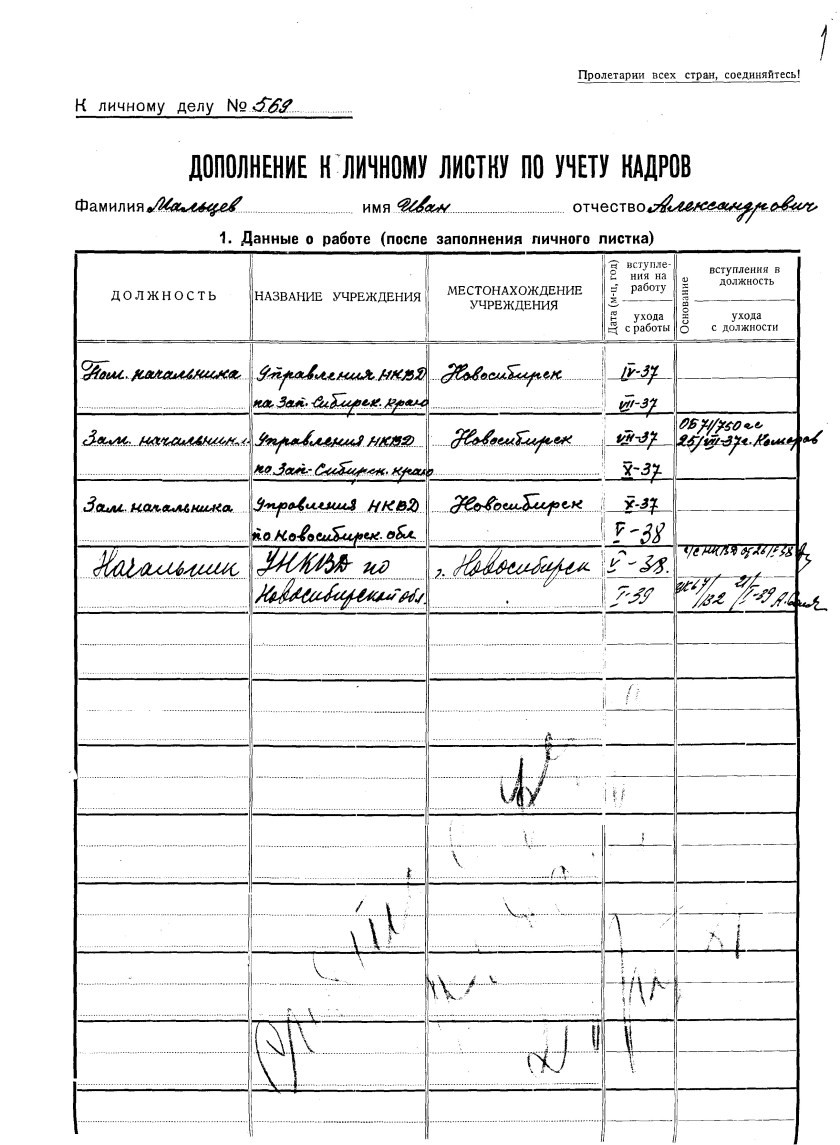 1
Пролетарии всех стран, соединяйтесь!
К личному делу № 569
ДОПОЛНЕНИЕ К ЛИЧНОМУ ЛИСТКУ ПО УЧЕТУ КАДРОВ
Фамилия Мальцев имя Иван отчество Александрович
1. Данные о работе (после заполнения личного листка)
ДОЛЖНОСТЬ
НАЗВАНИЕ УЧРЕЖДЕНИЯ
МЕСТОНАХОЖДЕНИЕ
УЧРЕЖДЕНИЯ
Дата (м-ц, год)
вступле-
ния на
работу
ухода
с работы
Основание
вступления в
должность
ухода
с должности
Пом. начальника Управления НКВД Новосибирск IV-37
по Зап. Сибирск. краю VII-37
Зам. начальник Управления НКВД Новосибирск VII-37 25/VIII-37г.
по Зап. Сибирск. краю X-37
Зам. начальника Управления НКВД Новосибирск X-37
по Новосибирск. обл V-38
Начальник УНКВД по г. Новосибирск V-38.
Новосибирской обл. I-39